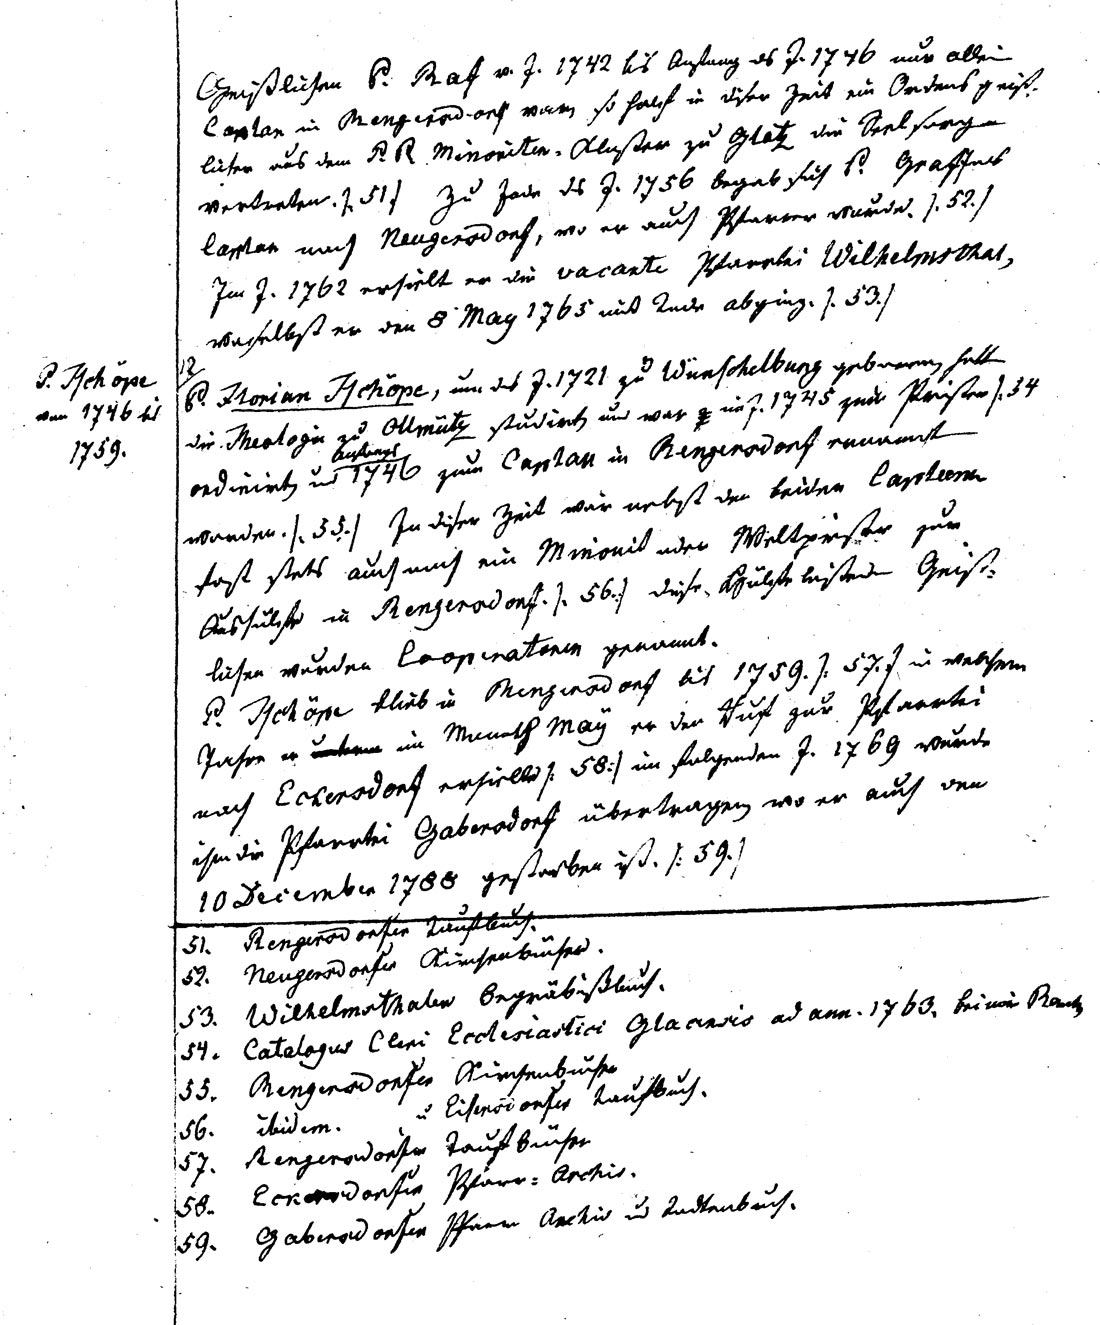 Geistlichen P. Raf v. J. 1742 bis Anfang des J. 1746 nur allein
Caplan in Rengersdorf war, so half in dieser Zeit ein Ordensgeist-
licher aus dem P. R. Minoriten-Kloster zu Glatz die Seelsorge
vertreten. /. 51/ Zu Ende des J. 1756 begab sich P.
Caplan nach Neugersdorf, wo er auch Pfarrer wurde. /. 52./
Im J. 1762 erhielt er die vacante Pfarrtei Wilhelmsthal,
woselbst er den 8 May 1765 mit Tode abging. /. 53./
P. Tschöpe
von 1746 bis
1759.
12
P. Florian Tschöpe, um das J. 1721 zu Wünschelburg geboren, hatte
die Theologie zu Ollmütz studirt, und war im J. 1745 zum Priester /. 54
ordinirt, und Anfangs 1746 zum Caplan in Rengersdorf ernannt
worden. /. 55./ In dieser Zeit war nebst den beiden Caplänen
fast stets auch noch ein Minorit oder Weltpriester zur
Aushülfe in Rengersdorf. /. 56./ diese Hülfe leistenden Geist-
lichen wurden Cooperatoren genannt.
P. Tschöpe blieb in Rengersdorf bis 1759. /. 57./ in welchem
Jahre er im Monath May er den Ruf zur Pfarrtei
nach Eckersdorf erhielt /. 58:/ im folgenden J. 1769 wurde
ihm die Pfarrtei Gabersdorf übertragen, wo er auch den
10 December 1788 gestorben ist. /: 59./
51. Rengersdorfer Taufbuch.
52. Neugersdorfer Kirchenbücher.
53. Wilhelmsthaler Begräbißbuch.
54. Catalogus Cleri Ecclesiastici Glacensis ad ann. 1763. bei mir
55. Rengersdorfer Kirchenbücher
56. ibidem. u Eisersdorfer Taufbuch.
57. Rengersdorfer Taufbücher
58. Eckersdorfer Pfarr-Archiv.
59. Gabersdorfer Pfarr Archiv u Todtenbuch.